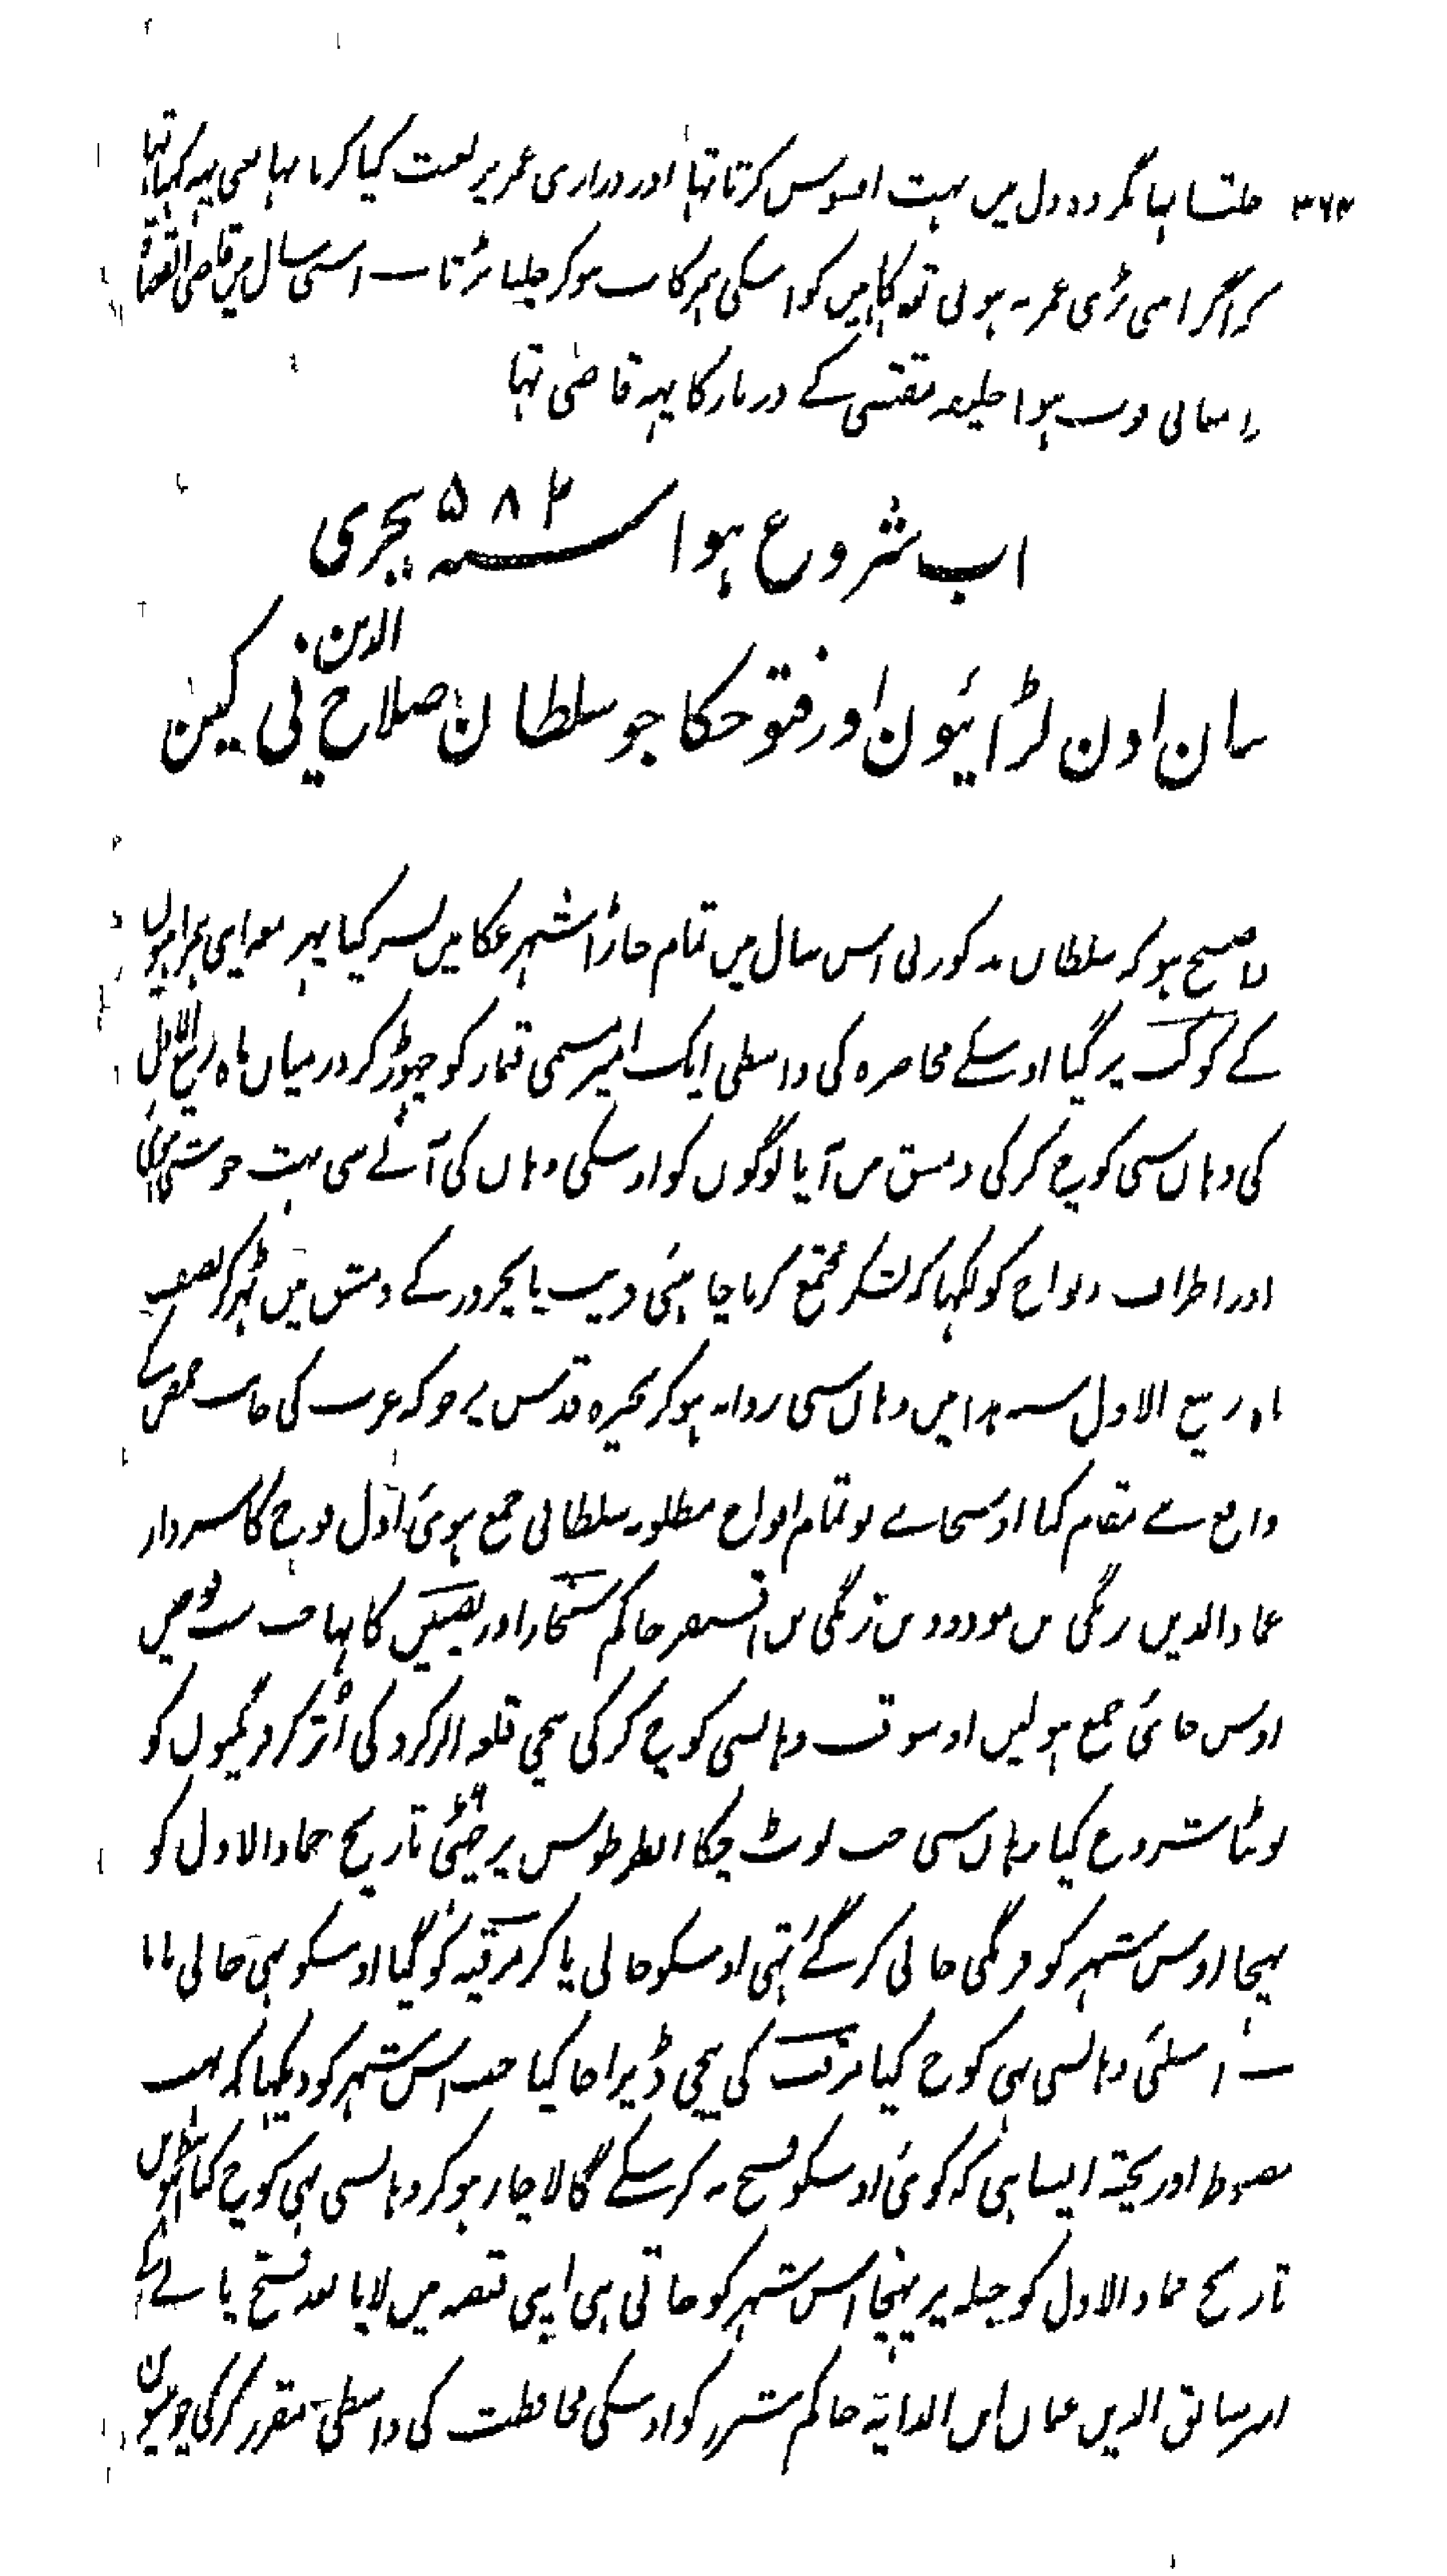 ۳۶۳ چلتا تہا مگر وہ دل میں بہت افسوس کرتا تہا اور درازی عمر پر لعنت کیا کرتا تہا یعنی یہہ کہتا تہا
کہ اگر اتنی بڑی عمر نہ ہوتی تو کاہیکو اسکی ہمرکاب ہو کر چلنا پڑتا اسی سال میں قاضی القضاۃ
فوت ہوا خلیفہ مقتفی کے دربار کا یہہ قاضی تہا
اب شروع ہوا سنہ ۵۸۴ ہجری
بیان اون لڑائیون اور فتوحکا جو سلطان صلاح الدین نی کین
واضح ہو کہ سلطان مذکور نی اس سال میں تمام جاڑا شہر عکا میں بسر کیا پہر معہ اپنی ہمراہیوں
کے کوکب پر گیا اوسکے محاصرہ کی واسطی ایک امیر مسمی قتماز کو چہوڑ کر درمیان ماہ ربیع الاول
کی وہاں سی کوچ کر کی دمشق میں آیا لوگوں کو اوسکی وہاں کی آنے سی بہت خوشی ہوئی
اور اطراف و نواح کو لکہا کہ لشکر مجتمع کرنا چاہئی قریب پانچروز کے دمشق میں ٹہر کر نصف
ماہ ربیع الاول سنہ ہذا میں وہاں سی روانہ ہو کر بحیرہ قدس پر جو کہ غرب کی جانب حمص کے
واقع ہے مقام کیا اوسجاے پر تمام افواج مطلوبہ سلطانی جمع ہوئی اول فوج کا سردار
عماد الدین زنگی بن مودود بن زنگی بن اقسنقر حاکم سنجار اور نصیبین کا تہا جب سب فوجیں
اوس جائی جمع ہولیں اوسوقت وہانسی کوچ کر کی نیچی قلعہ الاکراد کی اُتر کر فرنگیوں کو
لوٹنا شروع کیا وہاں سی جب لوٹ چکا انطرطوس پر چہٹی تاریخ جماد الاول کو
پہنچا اوس شہر کو فرنگی خالی کر گئے تہی اوسکو خالی پا کر مرقیہ کو گیا اوسکو بہی خالی پایا
اسلئی وہانسی بہی کوچ کیا مرقب کی نیچی ڈیرا جا کیا جب اس شہر کو دیکہا کہ بہت
مضبوط اور پختہ ایسا ہی کہ کوئی اوسکو فتح نہ کر سکے گا لاچار ہو کر وہانسی بہی کوچ کیا آٹہویں
تاریخ جماد الاول کو جبلہ پر پہنچا اس شہر کو جاتی ہی اپنی قبضہ میں لایا بعد فتح پانے کے
امیر سابق الدین عثمان ابن الدایہ حاکم شیزر کو اوسکی محافظت کی واسطی مقرر کر کی